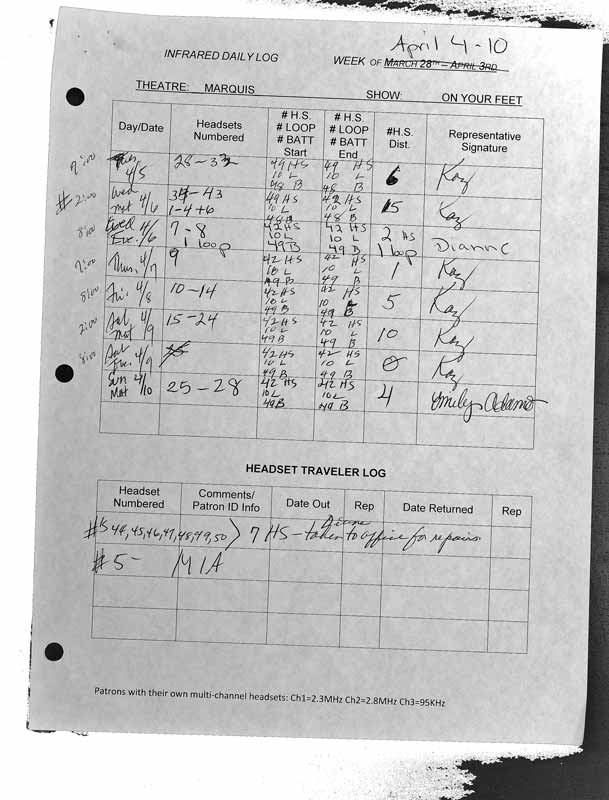 April 4-10
INFRARED DAILY LOG WEEK OF MARCH 28TH – APRIL 3RD
THEATRE: MARQUIS SHOW: ON YOUR FEET
Day/Date Headsets Numbered # H.S. # LOOP # BATT Start # H.S. # LOOP # BATT End #H.S. Dist. Representative Signature
7:00 Tues, 4/5 28-32 49 HS 10 L 48 B 49 HS 10 L 48 B 6 Kay
# 2:00 Wed Mat 4/6 34-43 1-4+6 49 HS 10 L 48 B 42 HS 10 L 48 B 15 Kay
8:00 Wed Eve. 4/6 7-8 1 loop 42 HS 10 L 49 B 42 HS 10 L 49 B 2 HS 1 loop Dianne
7:00 Thu, 4/7 9 42 HS 10 L 49 B 42 HS 10 L 49 B 1 Kay
8:00 Fri, 4/8 10-14 42 HS 10 L 49 B 42 HS 10 L 49 B 5 Kay
2:00 Sat Mat 4/9 15-24 42 HS 10 L 49 B 42 HS 10 L 49 B 10 Kay
8:00 Sat Eve. 4/9 42 HS 10 L 49 B 42 HS 10 L 49 B 0 Kay
Sun Mat 4/10 25-28 42 HS 10 L 49 B 42 HS 10 L 49 B 4 Emily Adams
HEADSET TRAVELER LOG
Headset Numbered Comments/ Patron ID Info Date Out Rep Date Returned Rep
#'s 44, 45, 46, 47, 48, 49, 50 > 7 HS – taken to office for repairs
Diane
#5- MIA
Patrons with their own multi-channel headsets: Ch1=2.3MHz Ch2=2.8MHz Ch3=95KHz